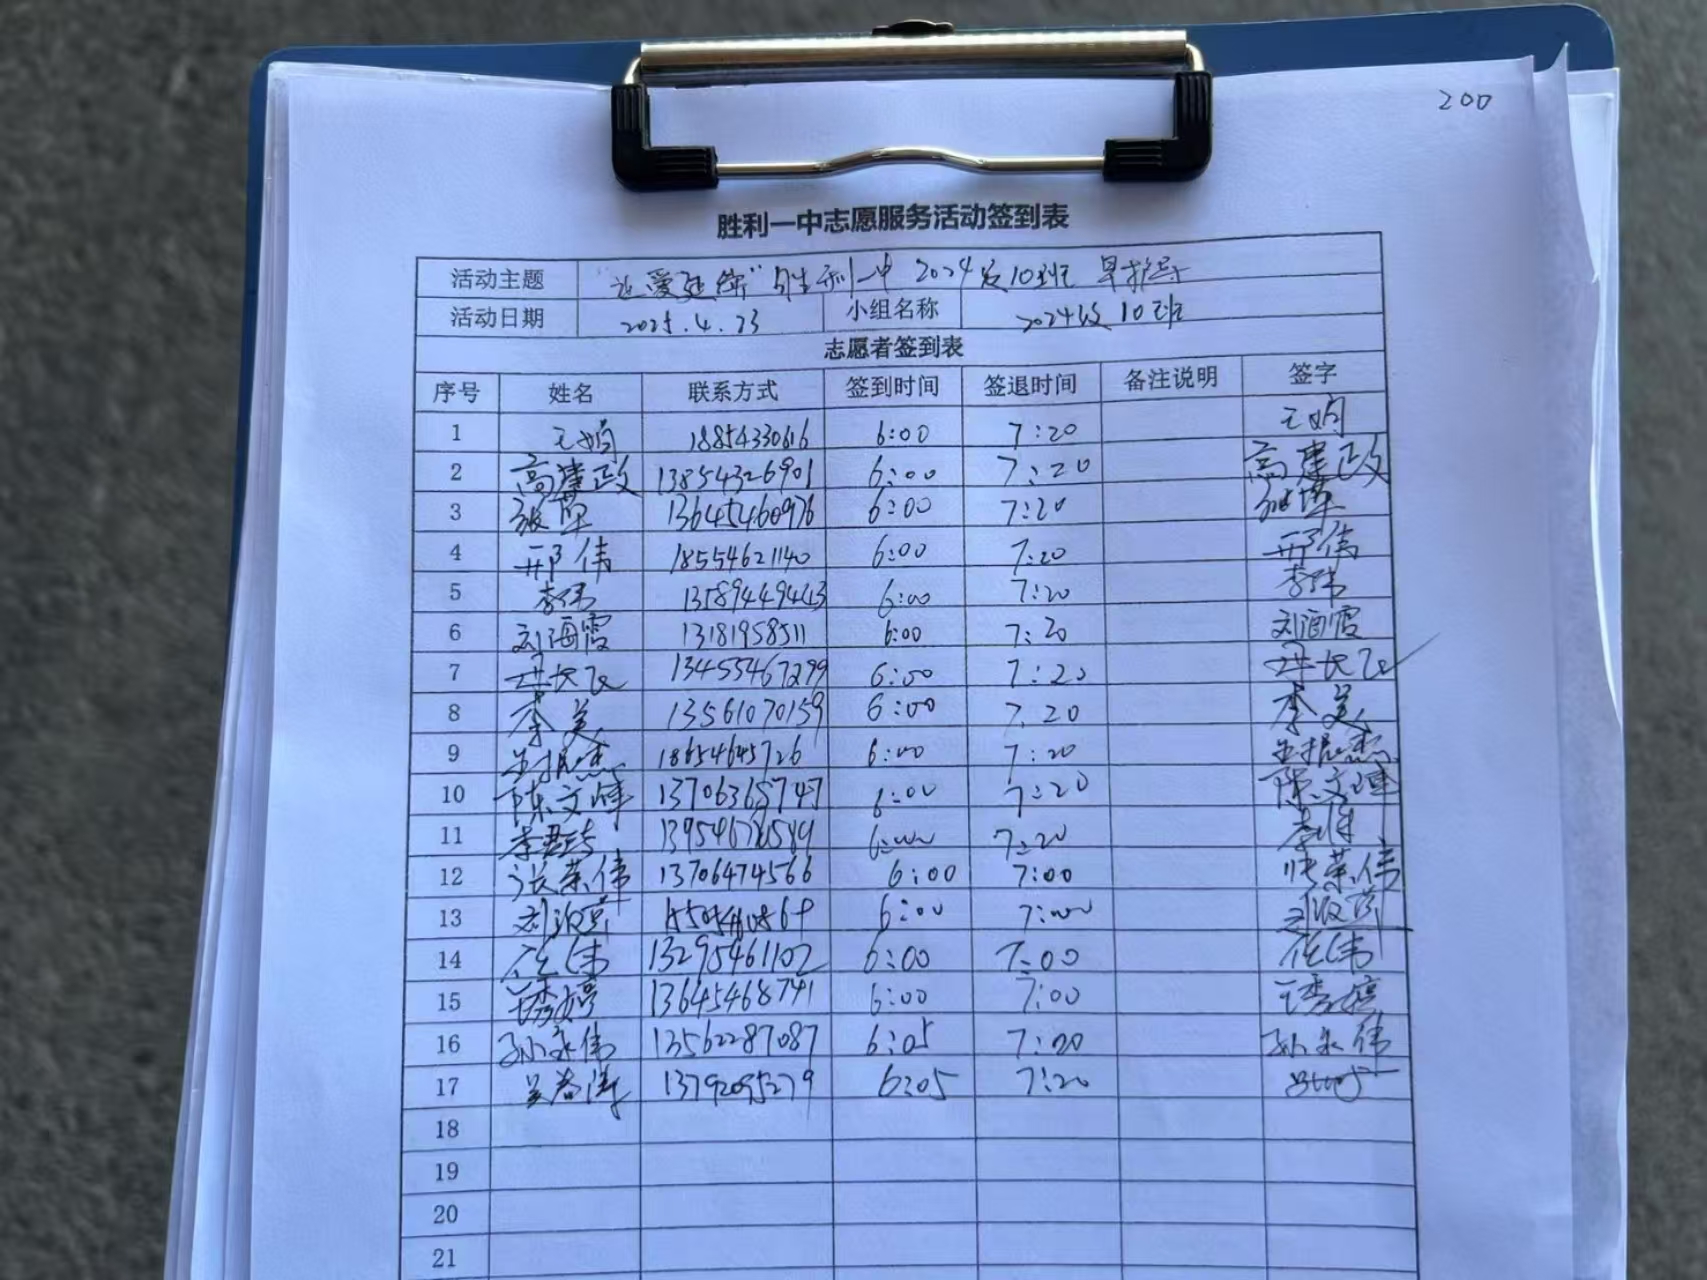 200
胜利一中志愿服务活动签到表
活动主题 "让爱延续"胜利一中2024级10班早护导
活动日期 2025.4.23 小组名称 2024级10班
志愿者签到表
序号 姓名 联系方式 签到时间 签退时间 备注说明 签字
1 王娟 18854330616 6:00 7:20 王娟
2 高建政 13854326901 6:00 7:20 高建政
3 13645460976 6:00 7:20
4 邢伟 18554621140 6:00 7:20 邢伟
5 李伟 6:00 7:20 李伟
6 刘海霞 13181958511 6:00 7:20 刘海霞
7 13455467299 6:00 7:20
8 李美 13561070159 6:00 7.20 李美
9 18654645726 6:00 7:20
10 陈文峰 13706365747 6:00 7:20 陈文峰
11 6:00 7:20
12 张荣伟 13706474566 6:00 7:00 张荣伟
13 6:00 7:00
14 任伟 13295461102 6:00 7:00 任伟
15 王秀婷 13645468741 6:00 7:00 王秀婷
16 孙永伟 13562287087 6:05 7:20 孙永伟
17 吴春涛 13792095279 6:05 7:20
18
19
20
21